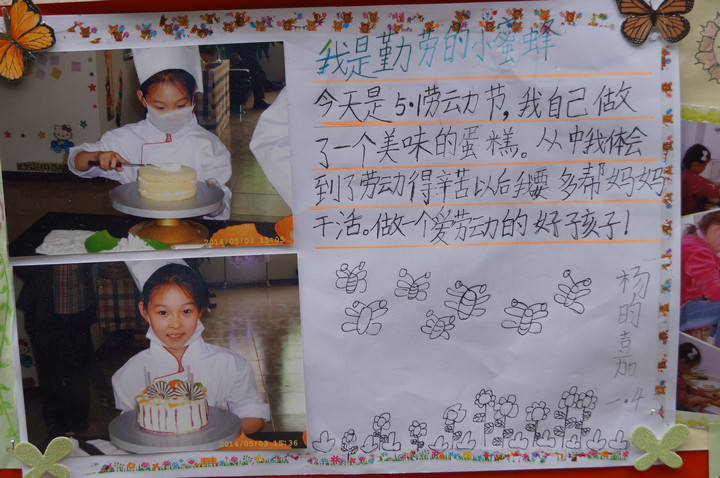 我是勤劳的小蜜蜂
今天是5·1劳动节,我自己做
了一个美味的蛋糕。从中我体会
到了劳动得辛苦以后我要多帮妈妈
干活。做一个爱劳动的好孩子!
杨昀嘉
一.4
2014/05/03 15:05
2014/05/03 15:36